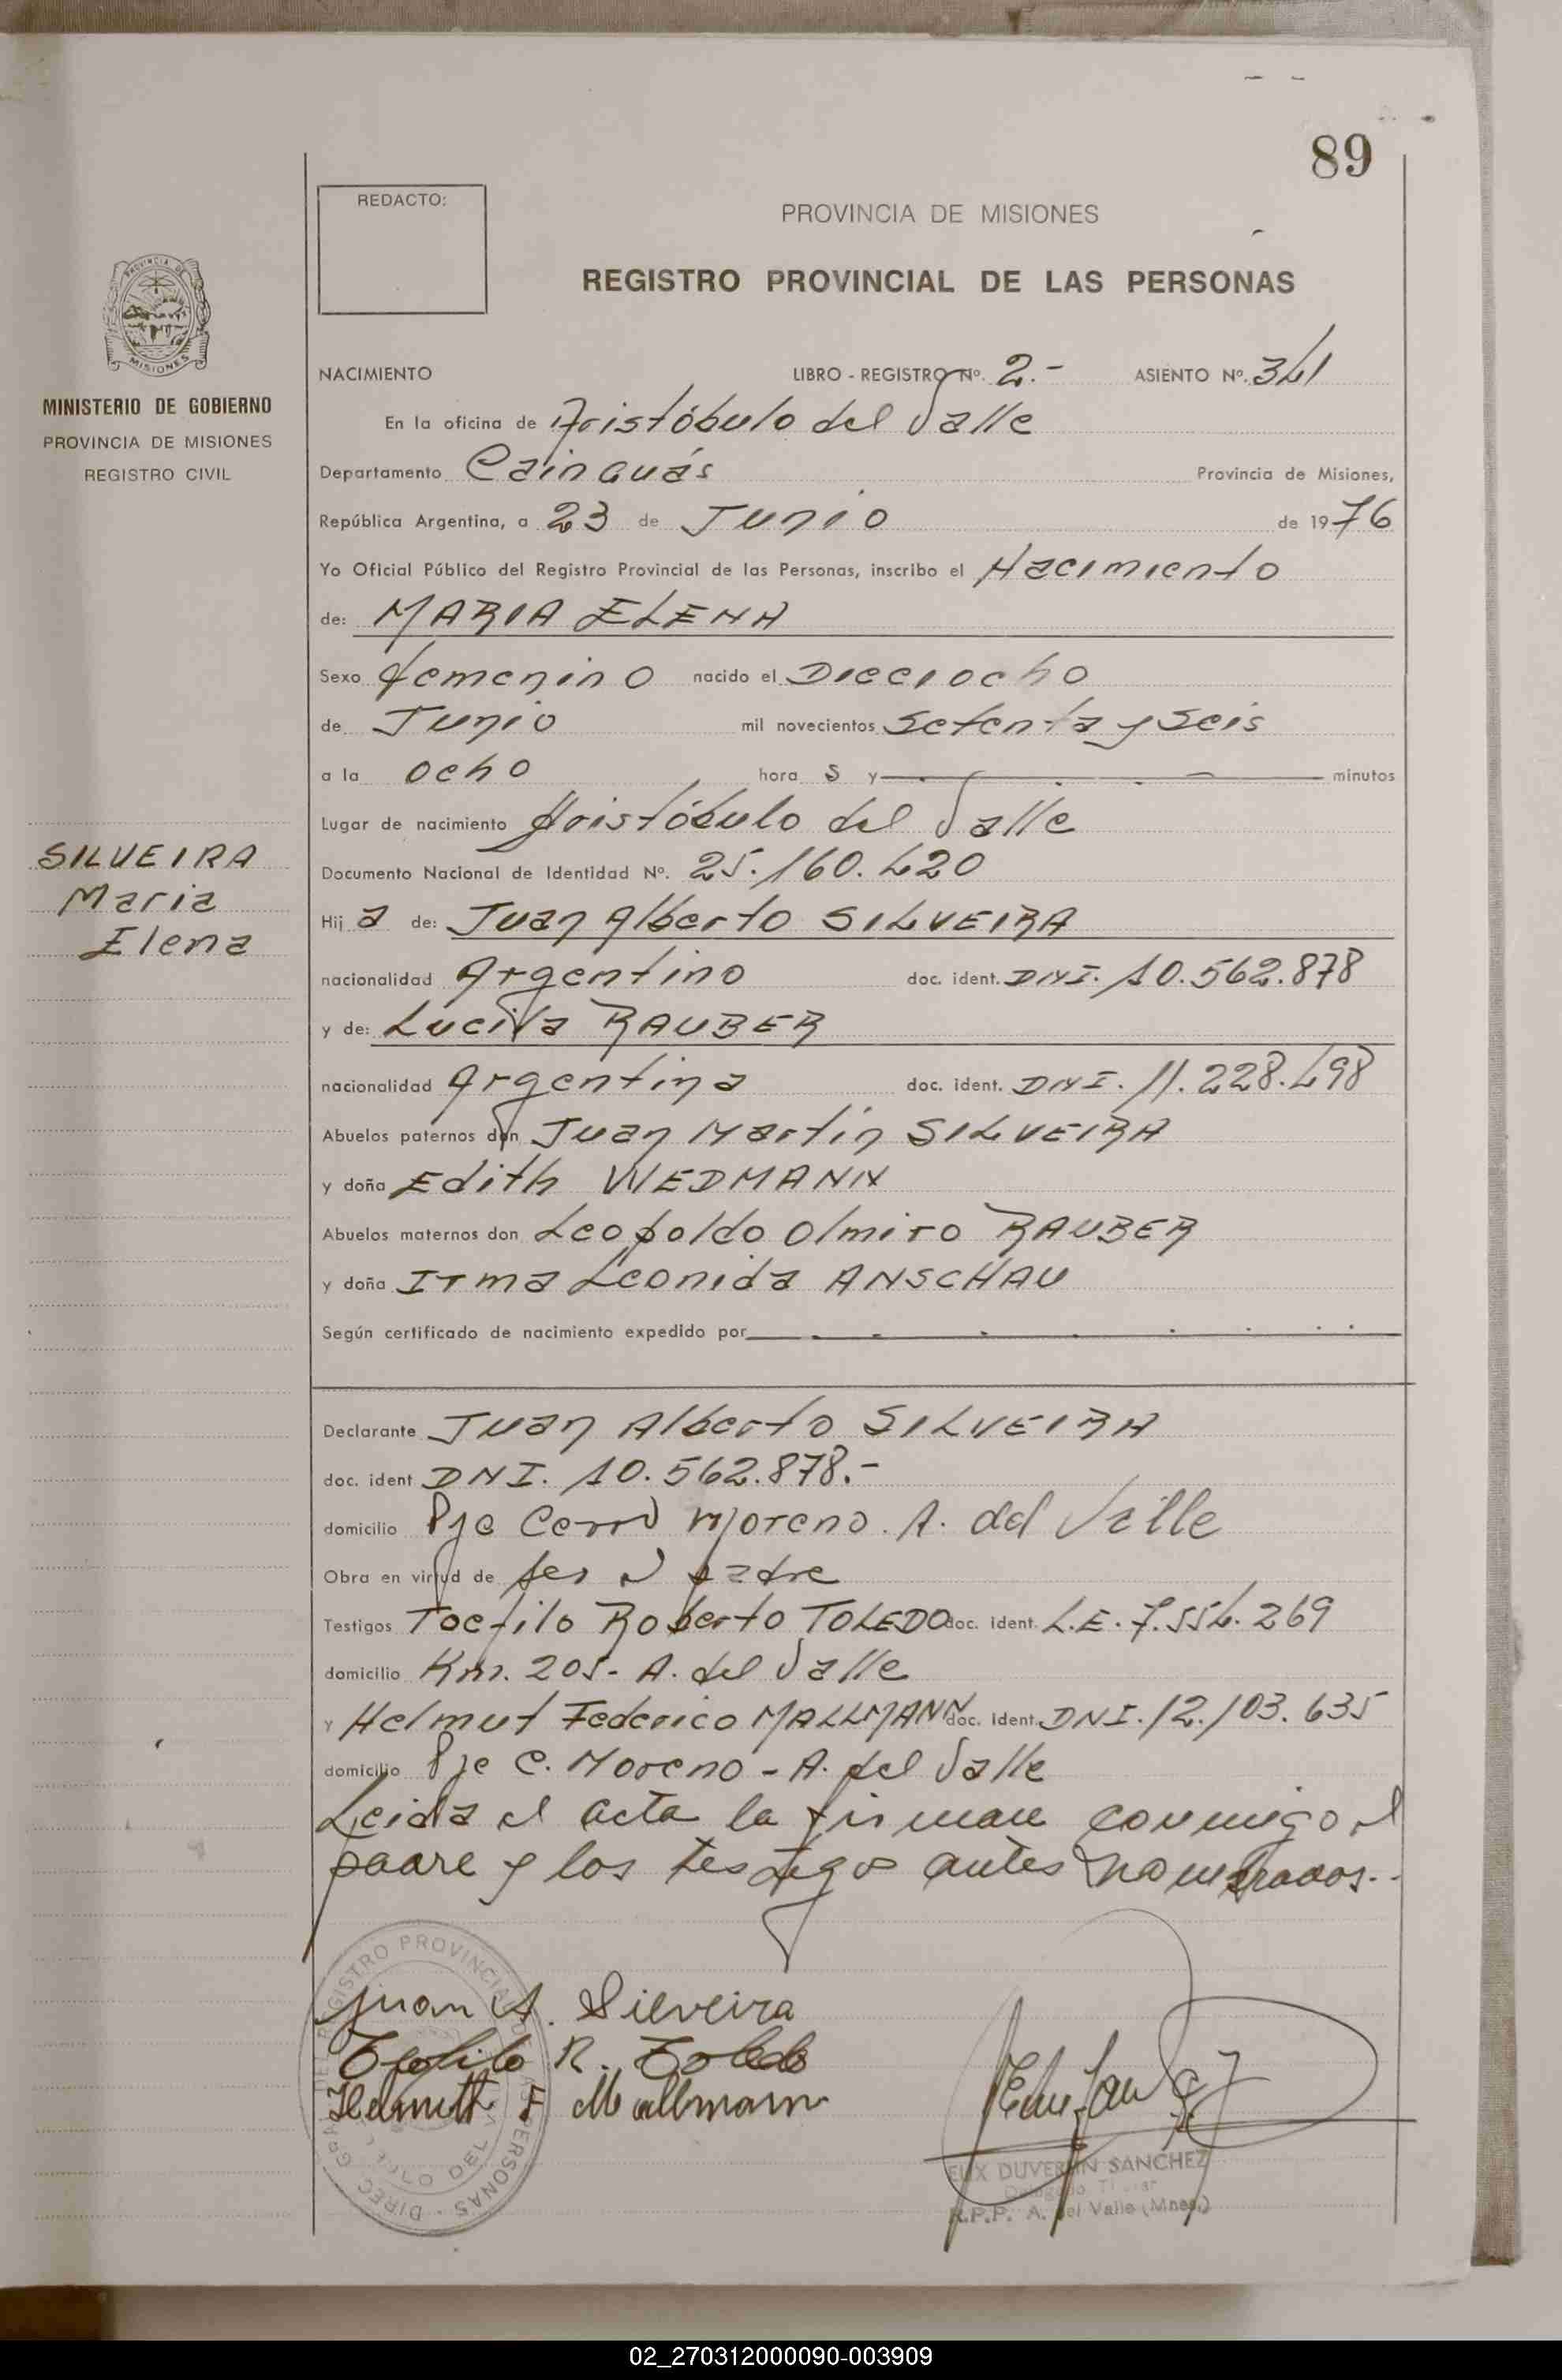 89
REDACTO:
PROVINCIA DE MISIONES
REGISTRO PROVINCIAL DE LAS PERSONAS
PROVINCIA DE
MISIONES
MINISTERIO DE GOBIERNO
PROVINCIA DE MISIONES
REGISTRO CIVIL
NACIMIENTO LIBRO - REGISTRO Nº. 2.- ASIENTO Nº. 341
En la oficina de Aristóbulo del Valle
Departamento Cainguás Provincia de Misiones,
República Argentina, a 23 de Junio de 1976
Yo Oficial Público del Registro Provincial de las Personas, inscribo el Nacimiento
de: MARIA ELENA
Sexo femenino nacido el Dieciocho
de Junio mil novecientos setenta y seis
a la ocho hora s y minutos
Lugar de nacimiento Aristóbulo del Valle
SILVEIRA
Maria
Elena
Documento Nacional de Identidad Nº. 25.160.420
Hija de: Juan Alberto SILVEIRA
nacionalidad Argentino doc. ident. DNI. 10.562.878
y de: Lucila RAUBER
nacionalidad Argentina doc. ident. DNI. 11.228.498
Abuelos paternos don Juan Martin SILVEIRA
y doña Edith WEDMANN
Abuelos maternos don Leopoldo Olmiro RAUBER
y doña Irma Leonida ANSCHAU
Según certificado de nacimiento expedido por
Declarante Juan Alberto SILVEIRA
doc. ident DNI. 10.562.878.-
domicilio Pje Cerro Moreno. A. del Valle
Obra en virtud de ser el padre
Testigos Teofilo Roberto TOLEDO doc. ident. L.E. 7.554.269
domicilio Km. 205- A. del Valle
y Helmut Federico MALLMANN doc. ident. DNI. 12.103.635
domicilio Pje C. Moreno - A. del Valle
Leida el acta la firman conmigo el
padre y los testigos antes nombrados.-
Juan A. Silveira
Teofilo R. Toledo
Helmuth F Mallmann
REGISTRO PROVINCIAL DE LAS PERSONAS · DIREC. GRAL. DEL
DUVERLIN SANCHEZ
Delegado Titular
R.P.P. A. del Valle (Mnes.)
02_270312000090-003909